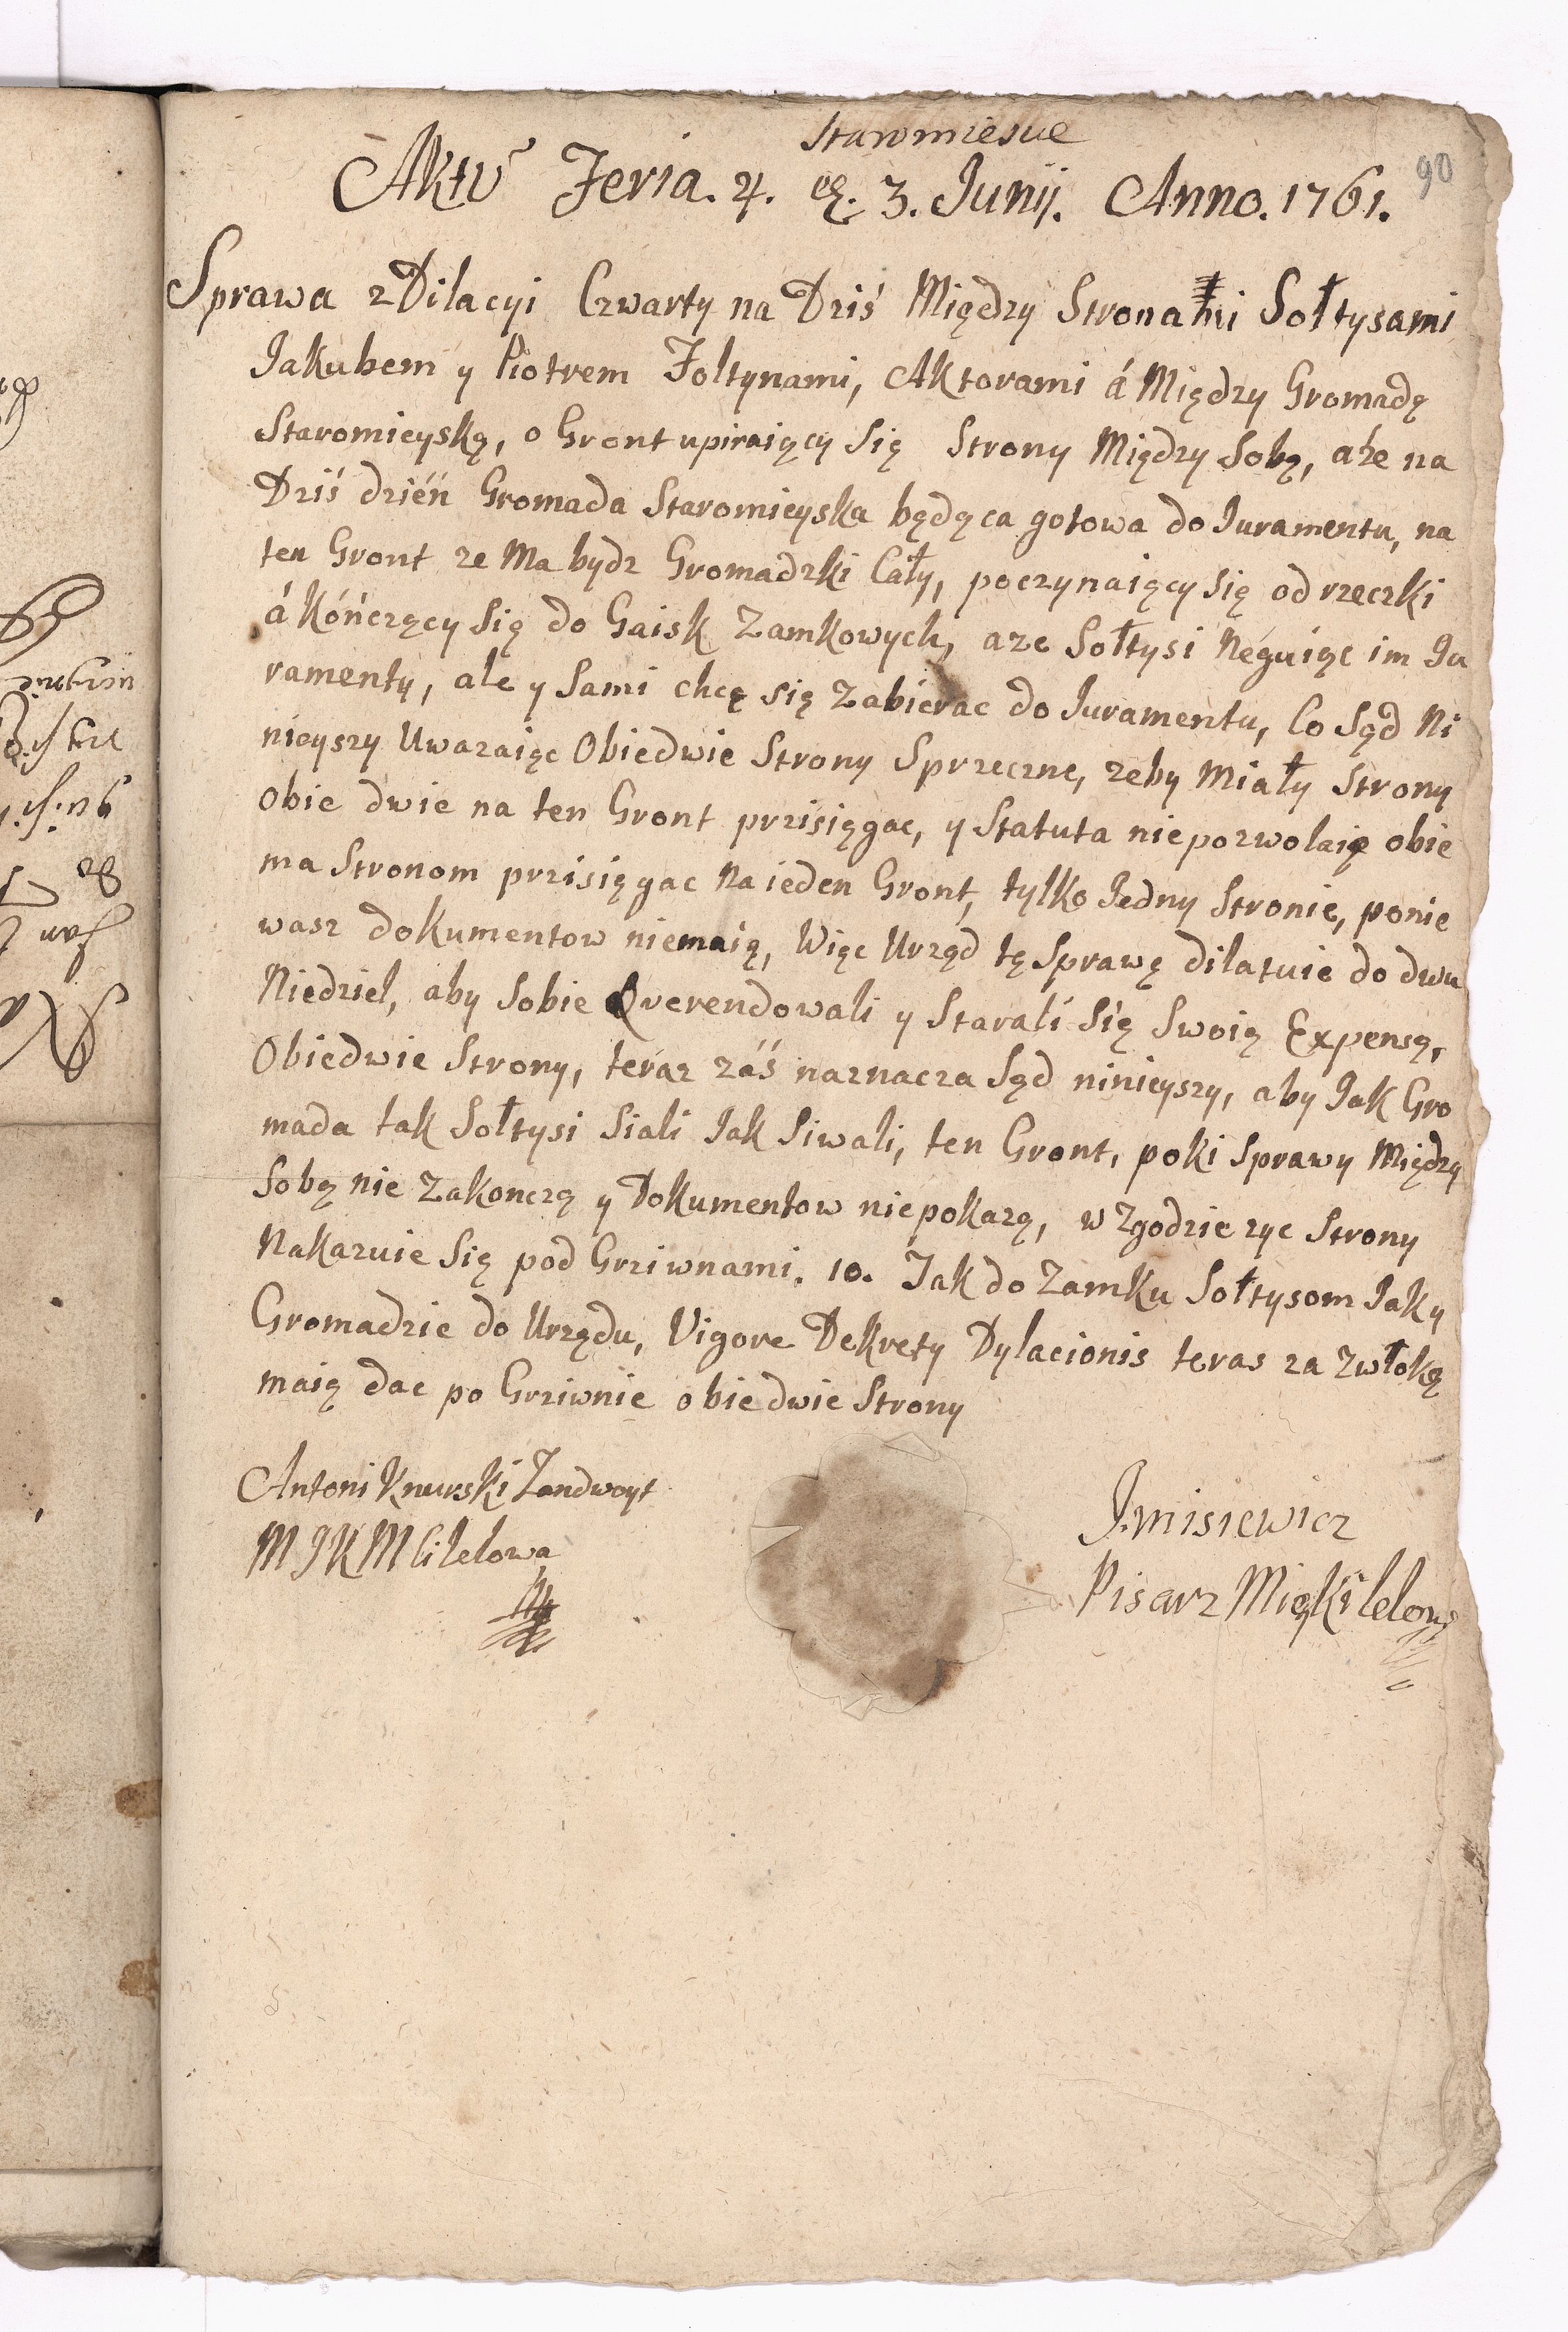 Staromiesue
Aktu Feria. 4. et. 3. Junij. Anno. 1761.
90
Sprawa z Dilacyi Czwarty na Dziś Między Stronami Sołtysami
Jakubem y Piotrem Foltynami, Aktorami á Między Gromadę
Staromieyską, o Gront upiraiący Się Strony Między Sobą, aże na
Dziś dzień Gromada Staromieyska będąca gotowa do Juramentu, na
ten Gront ze Ma bydz Gromadzki Cały, poczynaiący się od rzeczki
á Kończący Się do Gaisk Zamkowych, aze Sołtysi Neguiąc im Ju
ramenty, ale y Sami chcą się zabierac do Juramentu, Co Sąd Ni
nieyszy Uwazaiąc Obiedwie Strony Sprzeczne, zeby Miały Strony
obie dwie na ten Gront przisięgac, y Statuta niepozwolaią obie
ma Stronom przisięgac Na ieden Gront, tylko Jedny Stronie, ponie
wasz dokumentow niemaią, Więc Urząd tę Sprawę dilatuie do dwu
Niedziel, aby Sobie Qverendowali y Starali Się Swoią Expensą,
Obiedwie Strony, teraz zaś naznacza Sąd ninieyszy, aby Jak Gro
mada tak Sołtysi Siali Jak Siwali, ten Gront, poki Sprawy Między
Sobą nie Zakonczą y Dokumentow niepokazą, w Zgodzie zyc Strony
Nakazuie Się pod Grziwnami. 10. Jak do Zamku Sołtysom Jak y
Gromadzie do Urzędu, Vigore Dekrety Dylacionis teras za Zwłokę
maią dac po Grziwnie obiedwie Strony
Antoni Knurski Landwoyt
M J K M Lilelowa
J. misiewicz
Pisarz